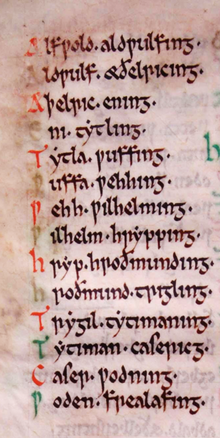 Alfƿold · aldƿulfing ·
Aldƿulf · æðelricing ·
Aþelric · ening ·
Eni · tytling ·
Tytla · ƿuffing ·
Ƿuffa · ƿehhing ·
Ƿehh · ƿilhelming ·
Ƿilhelm · hrypping ·
hryp · hroðmunding ·
hroðmund · trigling ·
Trygil · tytimaning ·
Tytiman · casericg ·
Caser · ƿodning ·
Ƿoden · frealafing ·